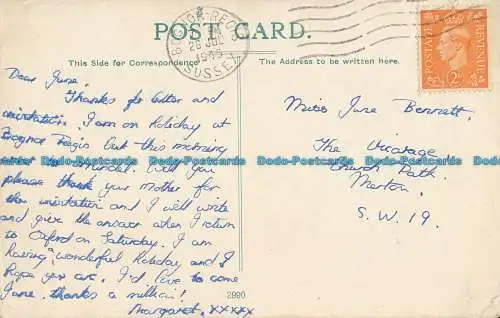 POST CARD.
BOGNOR REGIS
28 JUL
1945
SUSSEX
POSTAGE REVENUE
2D
This Side for Correspondence
The Address to be written here.
Dear June,
Thanks for letter and
invitation. I am on holiday at
Bognor Regis but this morning
Arundel. Will you
please thank your mother for
the invitation and I will write
and give the answer when I return
to Oxford on Saturday. I am
having a wonderful holiday and I
hope you are. I'd love to come
June, thanks a million!
Margaret. xxxxx
Miss June Bennett,
The Vicarage
Church Path
Merton,
S.W.19.
2990
Dodo-Postcards Dodo-Postcards Dodo-Postcards Dodo-Postcards